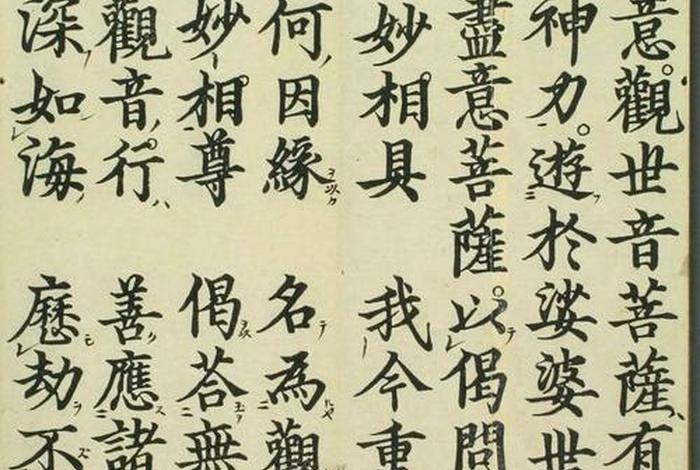 意觀世音菩薩有
神力遊於娑婆世
盡意菩薩以偈問
妙相具　我今重
何因緣　名為觀
妙相尊　偈荅無
觀音行　善應諸
深如海　歷劫不